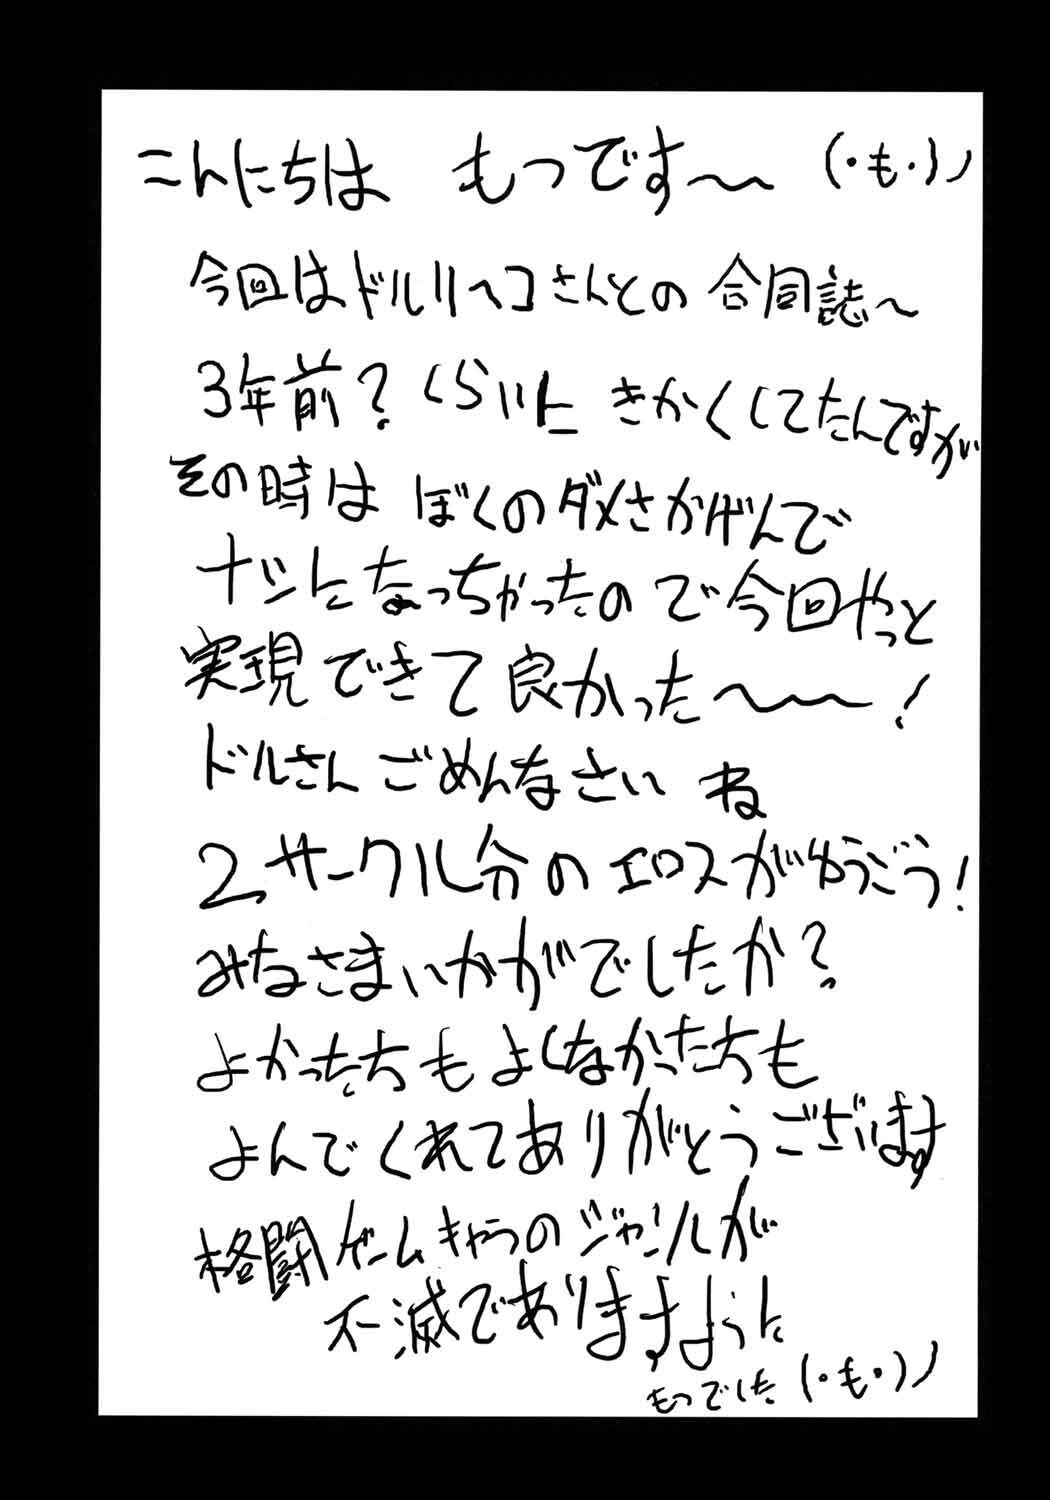 こんにちは もっです〜 (・も・)ノ
今回はドルリヘコさんとの合同誌〜
3年前?くらいに きかくしてたんですが
その時は ぼくのダメさかげんで
ナシになっちゃったので今回やっと
実現できて良かった〜〜!
ドルさんごめんなさい ね
2サークル分のエロスがゆうごう!
みなさまいかがでしたか?
よかったちも よくなかったちも
よんでくれてありがとうございます
格闘ゲームキャラのジャンルが
不滅でありますように
もっでした (・も・)ノ